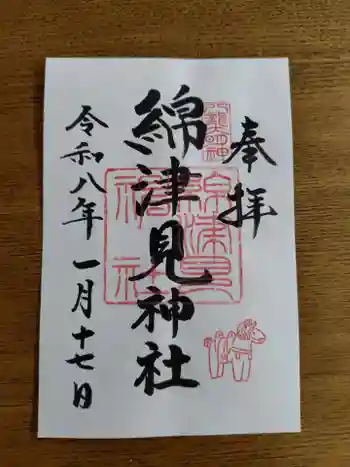 奉拝
八龍大明神
綿津見神社
綿津見
神社
令和八年一月十七日